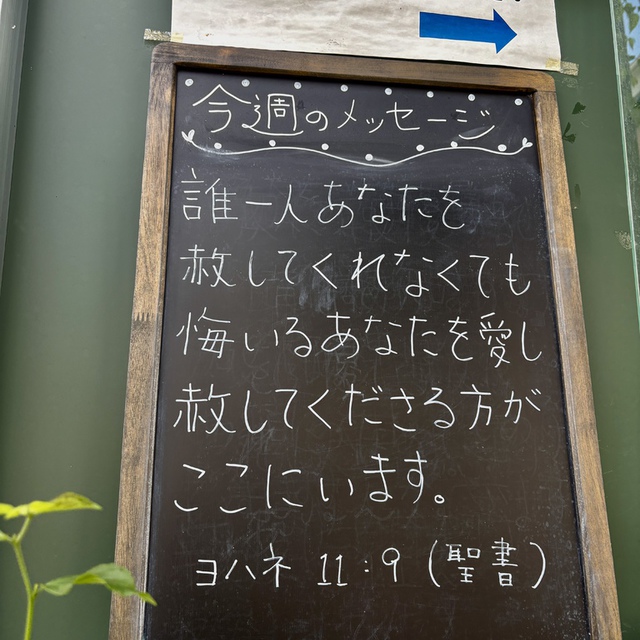 今週のメッセージ
誰一人あなたを
赦してくれなくても
悔いるあなたを愛し
赦してくださる方が
ここにいます。
ヨハネ 11:9 (聖書)